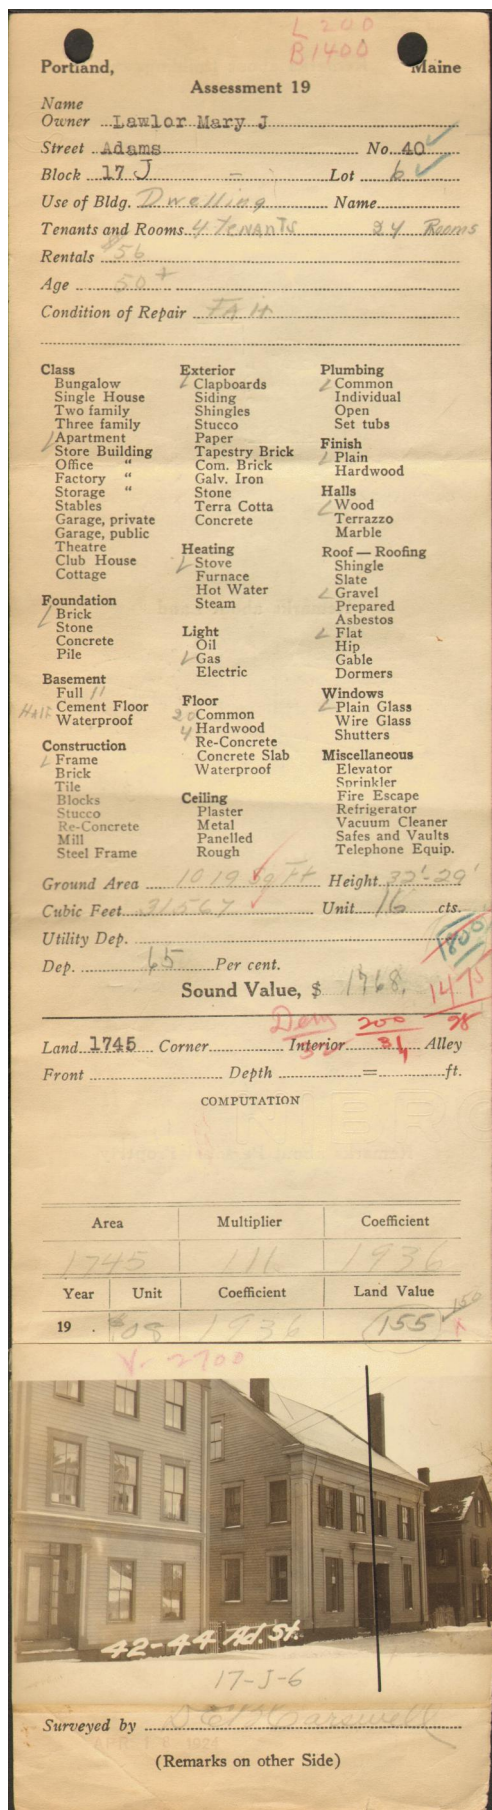 L 200
B 1400
Portland, Maine
Assessment 19
Name
Owner Lawlor Mary J
Street Adams No. 40
Block 17 J - Lot 6
Use of Bldg. Dwelling Name
Tenants and Rooms 4 Tenants 24 Rooms
Rentals $56
Age 50+
Condition of Repair FAIR
Class
Bungalow
Single House
Two family
Three family
Apartment
Store Building
Office "
Factory "
Storage "
Stables
Garage, private
Garage, public
Theatre
Club House
Cottage
Foundation
Brick
Stone
Concrete
Pile
Basement
Full 11
HALF Cement Floor
Waterproof
Construction
Frame
Brick
Tile
Blocks
Stucco
Re-Concrete
Mill
Steel Frame
Exterior
Clapboards
Siding
Shingles
Stucco
Paper
Tapestry Brick
Com. Brick
Galv. Iron
Stone
Terra Cotta
Concrete
Heating
Stove
Furnace
Hot Water
Steam
Light
Oil
Gas
Electric
Floor
20 Common
4 Hardwood
Re-Concrete
Concrete Slab
Waterproof
Ceiling
Plaster
Metal
Panelled
Rough
Plumbing
Common
Individual
Open
Set tubs
Finish
Plain
Hardwood
Halls
Wood
Terrazzo
Marble
Roof — Roofing
Shingle
Slate
Gravel
Prepared
Asbestos
Flat
Hip
Gable
Dormers
Windows
Plain Glass
Wire Glass
Shutters
Miscellaneous
Elevator
Sprinkler
Fire Escape
Refrigerator
Vacuum Cleaner
Safes and Vaults
Telephone Equip.
Ground Area 1019 Sq Ft Height 32'-29'
Cubic Feet 31567 Unit 16 cts.
Utility Dep. 1800
Dep. 65 Per cent.
Sound Value, $ 1768. 1475
Dem 200 28
Land 1745 Corner Interior 31 Alley
Front Depth = ft.
COMPUTATION
Area Multiplier Coefficient
1745 111 1936
Year Unit Coefficient Land Value
19 . $08 1936 155 150
V. 2700
42-44 Ad. St.
17-J-6
Surveyed by Carswell
(Remarks on other Side)